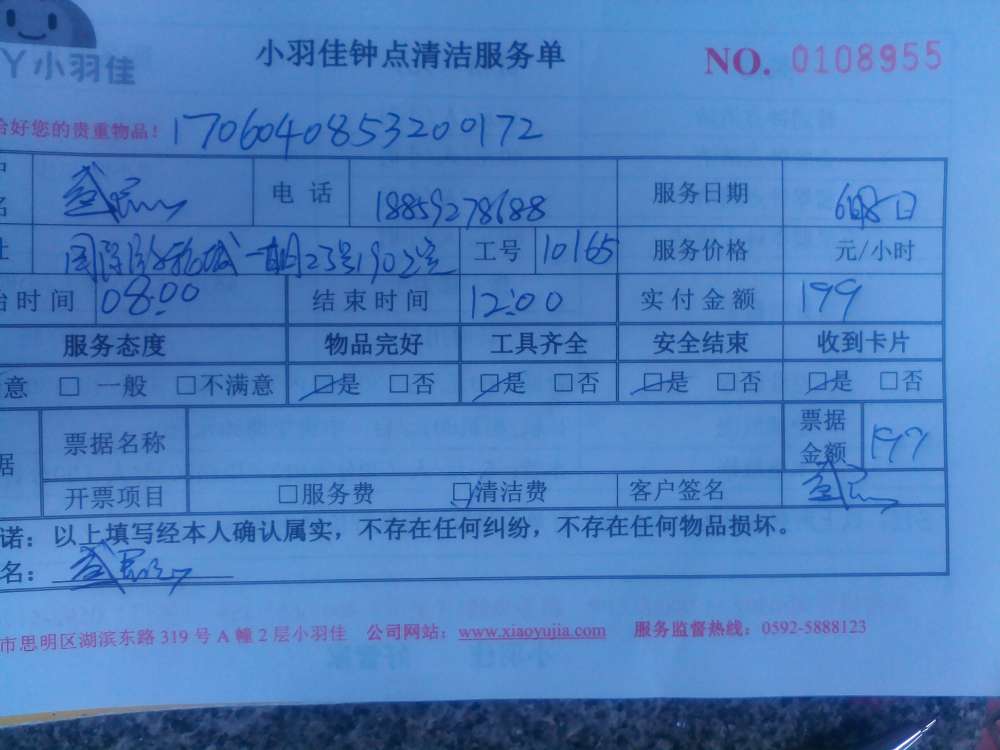 小羽佳
小羽佳钟点清洁服务单
NO. 0108955
好您的贵重物品！ 1706040853200172
名 盛 电话 18859278688 服务日期 6月8日
国际 城一期23号1902室 工号 10165 服务价格 元/小时
时间 08:00 结束时间 12:00 实付金额 199
服务态度 物品完好 工具齐全 安全结束 收到卡片
意 □ 一般 □不满意 □是 □否 □是 □否 □是 □否 □是 □否
据 票据名称 票据金额 197
开票项目 □服务费 □清洁费 客户签名 盛
诺：以上填写经本人确认属实，不存在任何纠纷，不存在任何物品损坏。
名： 盛
市思明区湖滨东路 319 号 A 幢 2 层小羽佳 公司网站：www.xiaoyujia.com 服务监督热线：0592-5888123